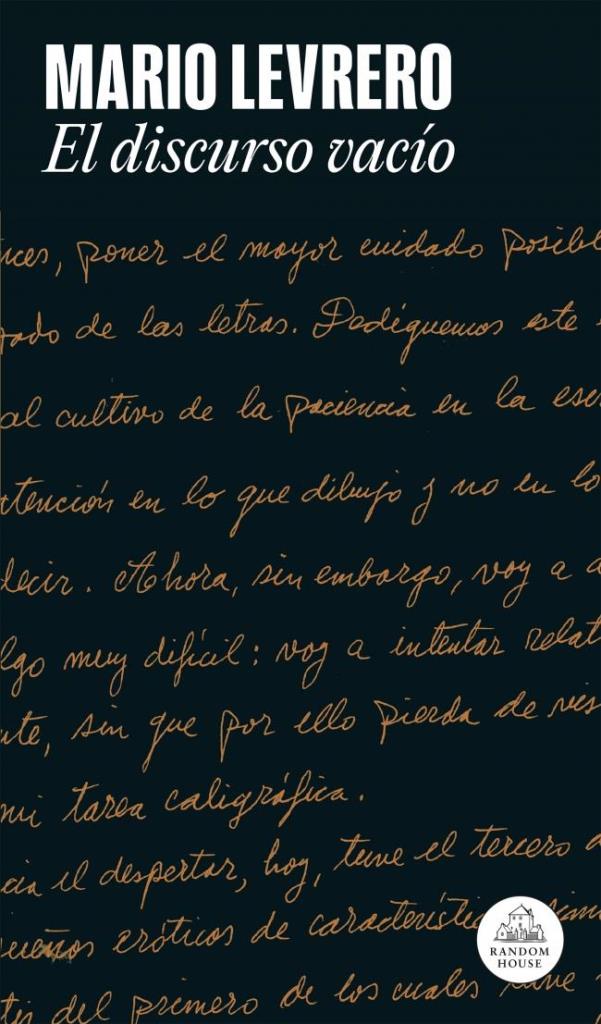 MARIO LEVRERO
El discurso vacío
nces, poner el mayor cuidado posibl
zado de las letras. Dediquemos este
al cultivo de la paciencia en la esc
tención en lo que dibujo y no en lo
decir. Ahora, sin embargo, voy a a
lgo muy difícil: voy a intentar relat
nte, sin que por ello pierda de vis
mi tarea caligráfica.
cia el despertar, hoy, tuve el tercero d
sueños eróticos de característic
del primero de los cuales tuve
RANDOM
HOUSE